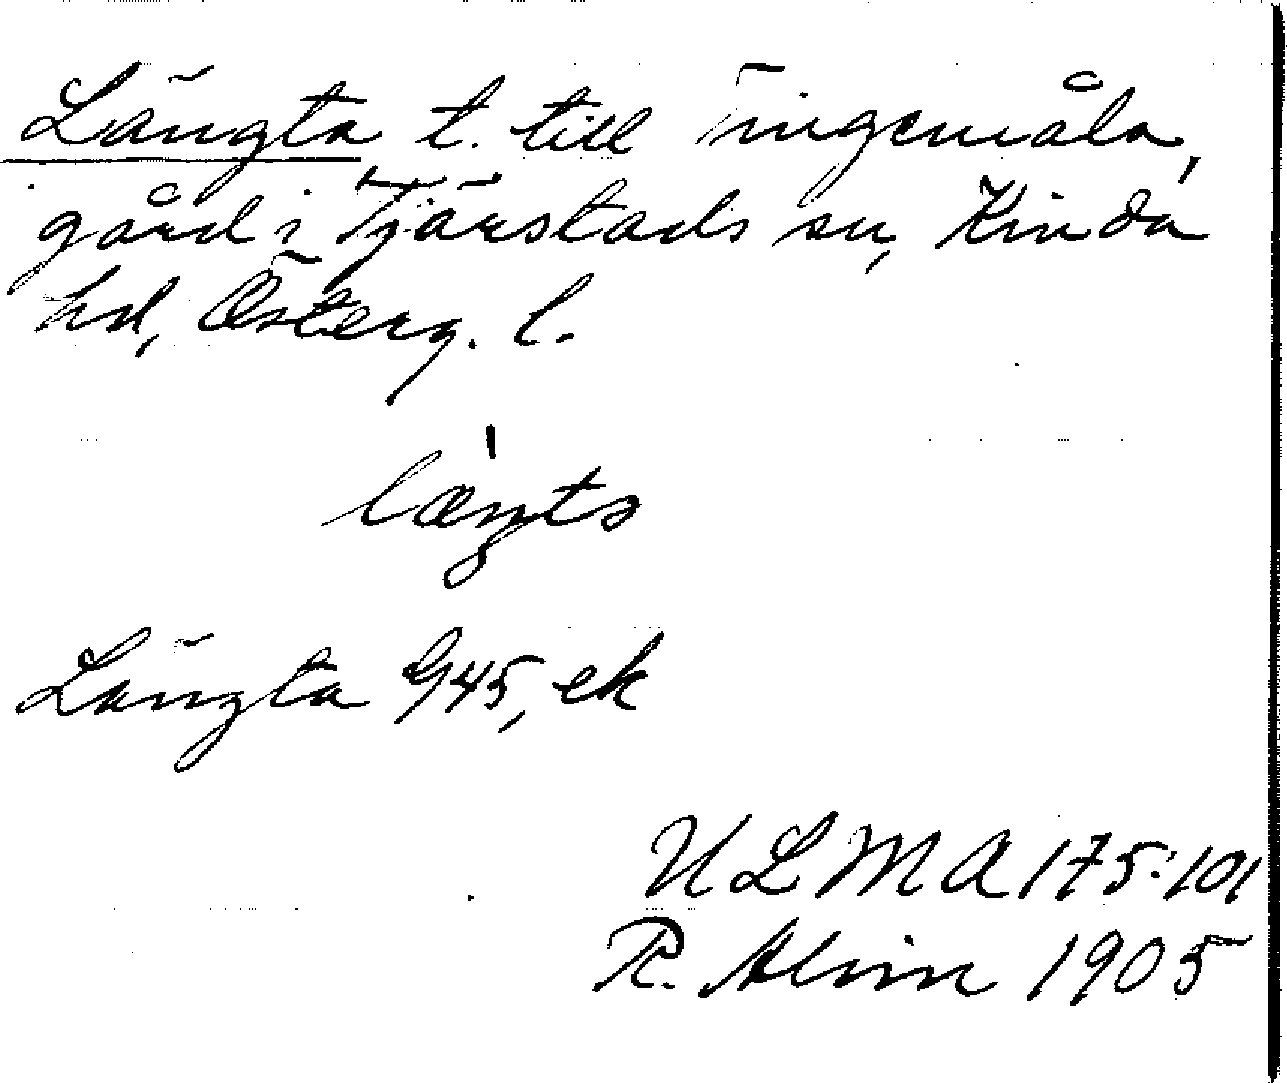 Längta, t. till Tingemåla,
gård i Tjärstads sn, Kinda
hd, Österg. l.
længta
Längta G45, ek
ULMA 175:101
R. Alvin 1905